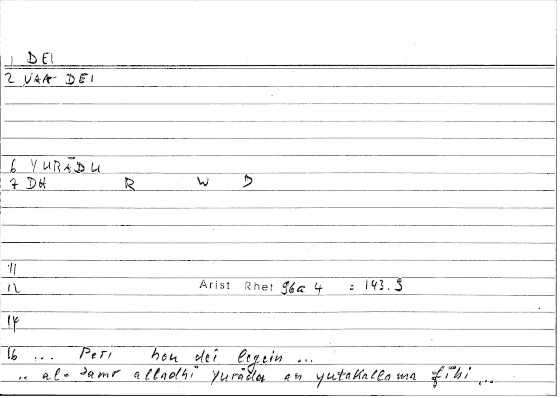 1 DEI
2 VAA DEI
6 YURĀDU
7 DH R W D
11
12 Arist Rhet 96a 4 = 143.9
14
16 ... Peri hou dei legein ...
.. al-ʾamr alladhī yurādu an yutakallama fīhi ...